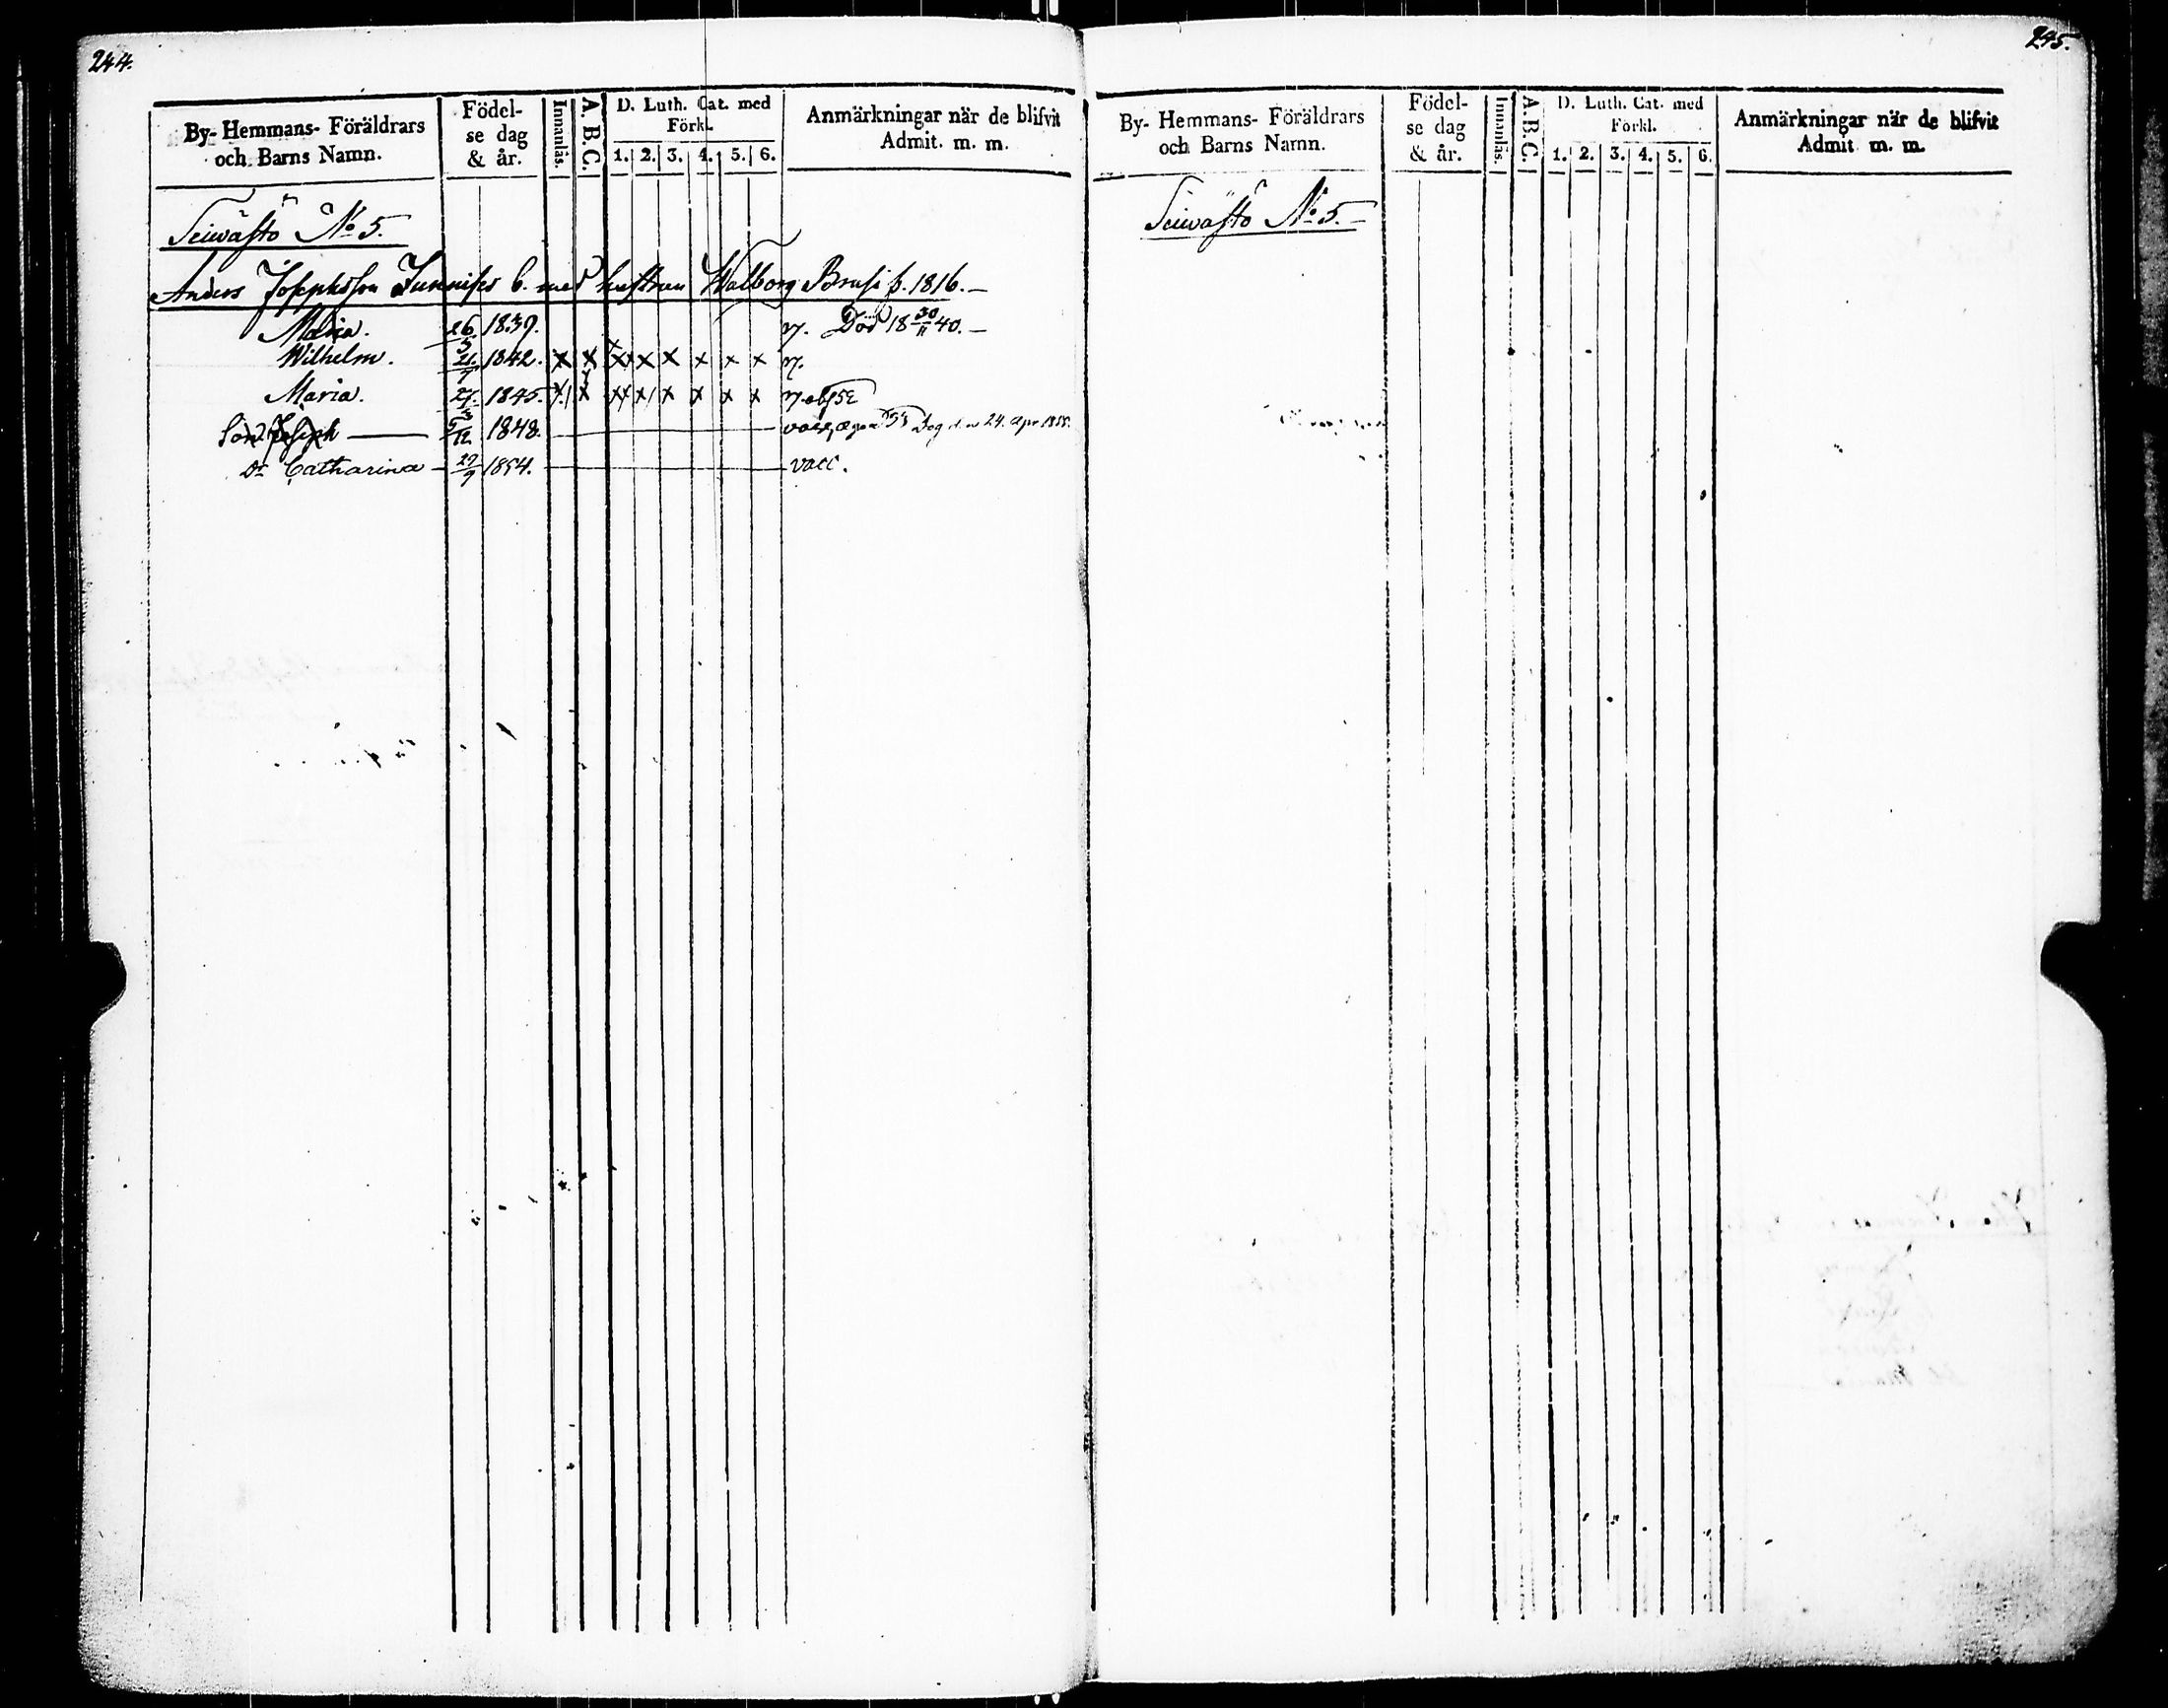 244.
By- Hemmans- Föräldrars och Barns Namn.
Födelse dag & år.
Innanläs.
A. B. C.
D. Luth. Cat. med Förkl.
1. 2. 3. 4. 5. 6.
Anmärkningar när de blifvit Admit. m. m.
Seiwästö No 5.
Anders Josephsson b. med hustrun Walborg f. 1816.
Maria. 26/5 1837. n. Död 18 30/11 40.
Wilhelm. 1842. x x x x x x x x n.
Maria. 1845. x x x x x x x x n.
Son Joseph 5/12 1848. Dog den 24. Apr 1855.
Dr Catharina 27/9 1854. vacc.
245.
By- Hemmans- Föräldrars och Barns Namn.
Födelse dag & år.
Innanläs.
A. B. C.
D. Luth. Cat. med Förkl.
1. 2. 3. 4. 5. 6.
Anmärkningar när de blifvit Admit. m. m.
Seiwästö No 5.